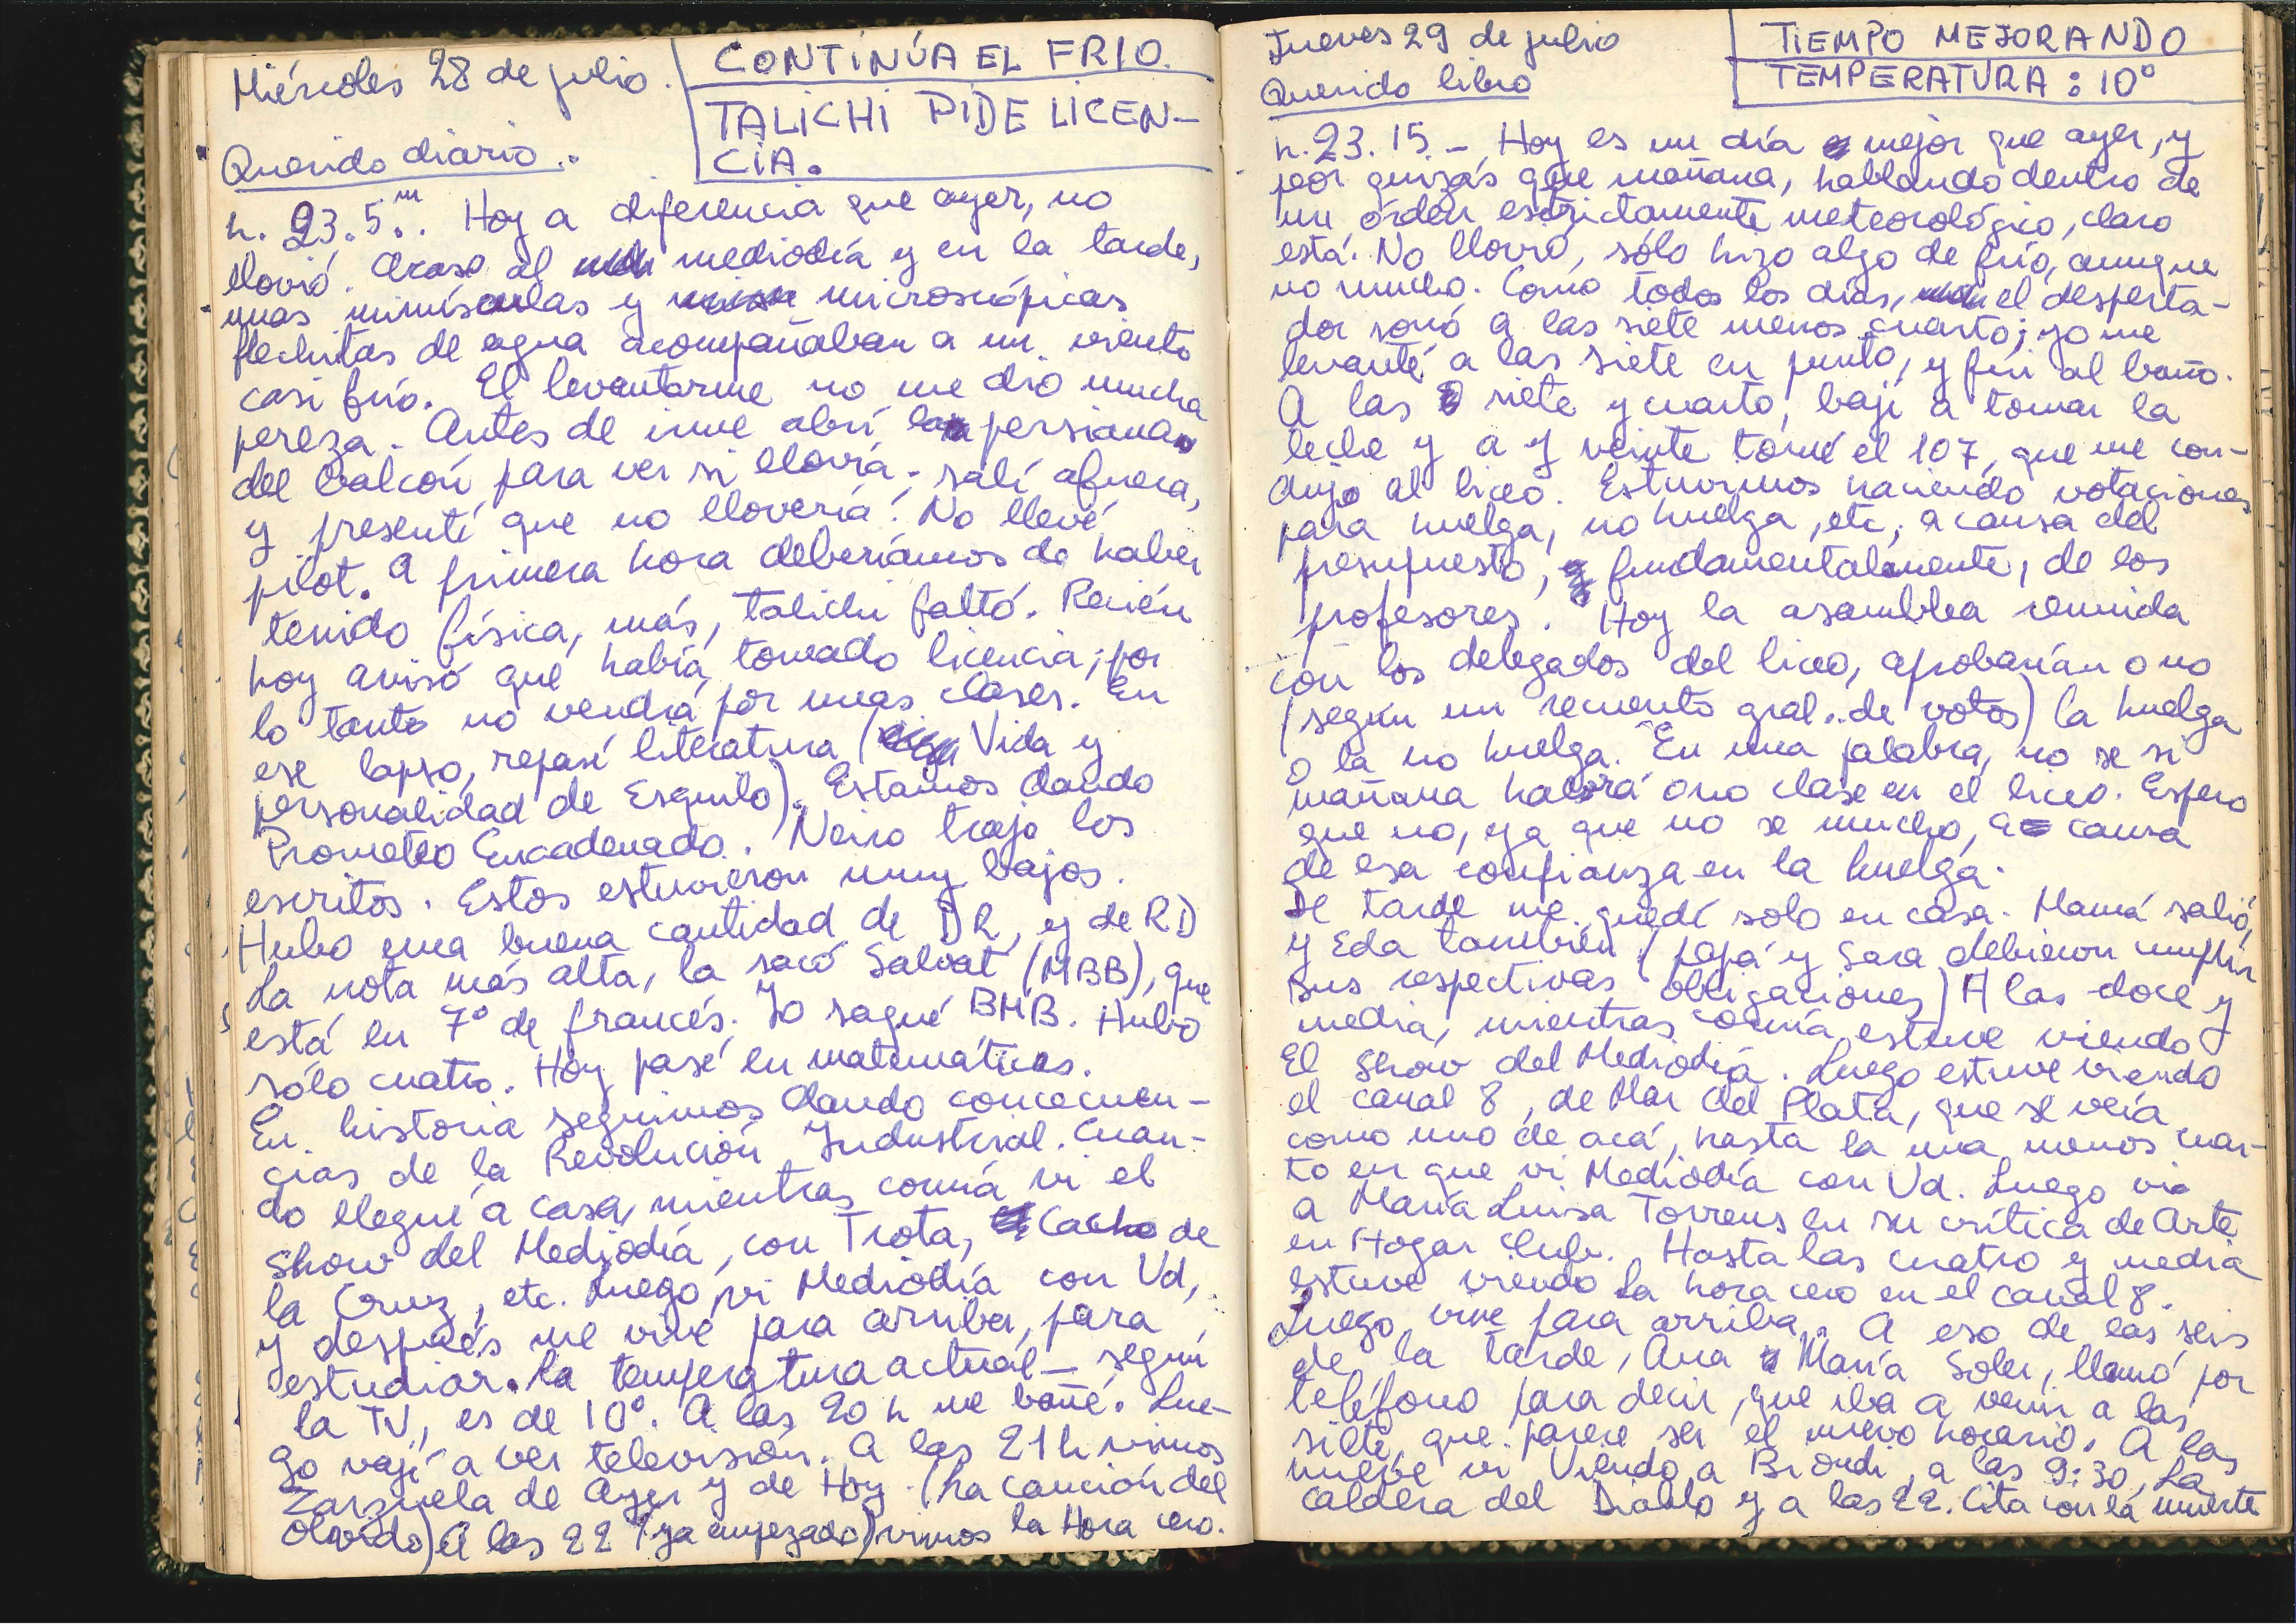 Miércoles 28 de julio.
CONTINÚA EL FRIO.
TALICHI PIDE LICEN-
CIA.
Querido diario..
h. 23.5.m Hoy a diferencia que ayer, no
llovió. Acaso al mediodía y en la tarde,
unas minúsculas y microscópicas
flechitas de agua acompañaban a un viento
casi frío. El levantarme no me dio mucha
pereza. Antes de irme abrí la persiana
del balcón para ver si llovía; salí afuera,
y presentí que no llovería. No llevé
pilot. A primera hora deberíamos de haber
tenido física, más, Talichi faltó. Recién
hoy avisó que había tomado licencia; por
lo tanto no vendrá por unas clases. En
ese lapso, repasé literatura (Vida y
personalidad de Esquilo). Estamos dando
Prometeo Encadenado. Neiro trajo los
escritos. Estos estuvieron muy bajos.
Hubo una buena cantidad de DR, y de RD
La nota más alta, la sacó Salvat (MBB), que
está en 7º de francés. Yo saqué BMB. Hubo
sólo cuatro. Hoy pasé en matemáticas.
En historia seguimos dando concecuen-
cias de la Revolución Industrial. Cuan-
do llegué a casa, mientras comía vi el
Show del Mediodía, con Trota, Cacho de
la Cruz, etc. Luego vi Mediodía con Vd,
y después me vine para arriba, para
estudiar. La temperatura actual – según
la TV, es de 10º. A las 20 h me bañé. Lue-
go vajé a ver televisión. A las 21h vimos
Zarzuela de Ayer y de Hoy. (La canción del
Olvido) A las 22 (ya empezado) vimos la Hora cero.
Jueves 29 de julio
TIEMPO MEJORANDO
TEMPERATURA: 10º
Querido libro
h. 23.15. – Hoy es un día mejor que ayer, y
peor quizás que mañana, hablando dentro de
un órden estrictamente meteorológico, claro
está. No llovió, sólo hizo algo de frío, aunque
no mucho. Como todos los días, el desperta-
dor sonó a las siete menos cuarto; yo me
levanté a las siete en punto, y fui al baño.
A las siete y cuarto, bajé a tomar la
leche y a y veinte tomé el 107, que me con-
dujo al liceo. Estuvimos haciendo votaciones
para huelga, no huelga, etc, a causa del
presupuesto, fundamentalmente, de los
profesores. Hoy la asamblea reunida
con los delegados del liceo, aprobarían o no
(según un recuento gral. de votos) la huelga
o la no huelga. En una palabra, no se si
mañana habrá o no clase en el liceo. Espero
que no, ya que no se mucho, a causa
de esa confianza en la huelga.
De tarde me quedé solo en casa. Mamá salió,
y Eda también (papá y Sara debieron cumplir
sus respectivas obligaciones) A las doce y
media, mientras comía, estuve viendo
El Show del Mediodía. Luego estuve viendo
el canal 8, de Mar del Plata, que se veía
como uno de acá, hasta la una menos cuar-
to en que vi Mediodía con Vd. Luego vi
a María Luisa Torrens en su crítica de Arte
en Hogar Club. Hasta las cuatro y media
estuve viendo la hora cero en el canal 8.
Luego vine para arriba. A eso de las seis
de la tarde, Ana María Soler, llamó por
teléfono para decir, que iba a venir a las
siete, que parece ser el nuevo horario. A las
nueve vi Viendo a Biondi, a las 9:30, La
caldera del Diablo y a las 22. Cita con la muerte